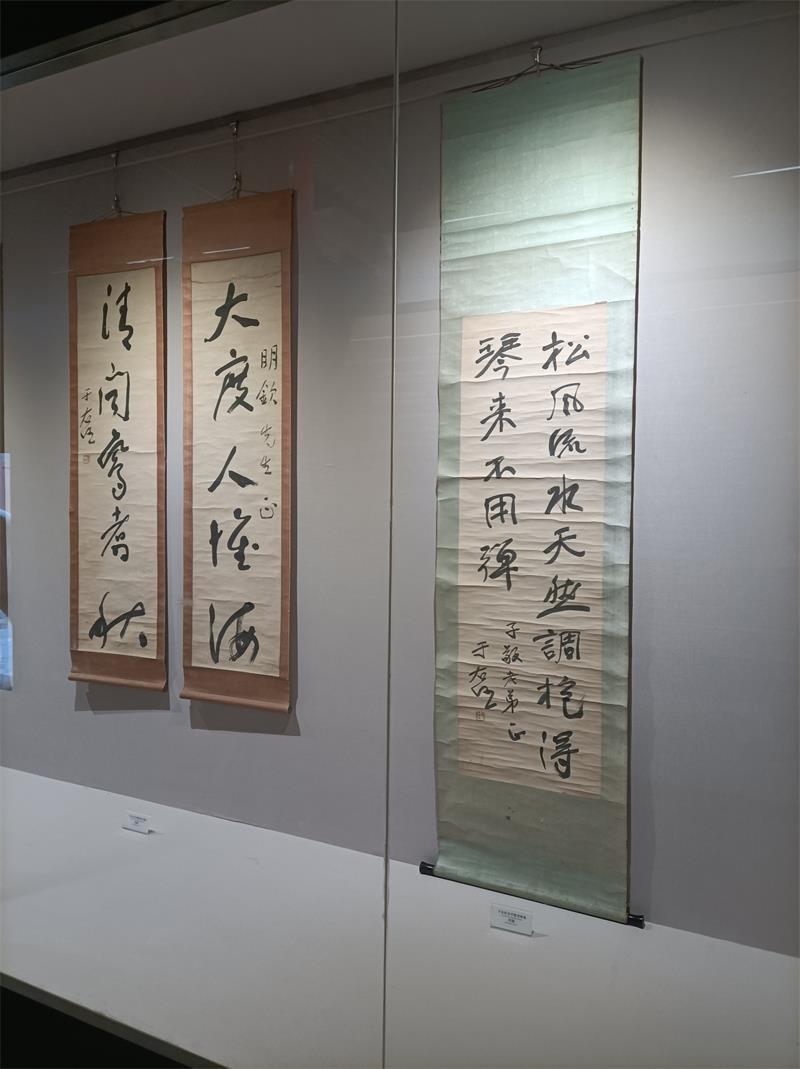 松風流水天然調抱得
琴来不用彈
子敬老弟正
于右任
大度人惟海
明欽先生正
清聞者秋
于右任